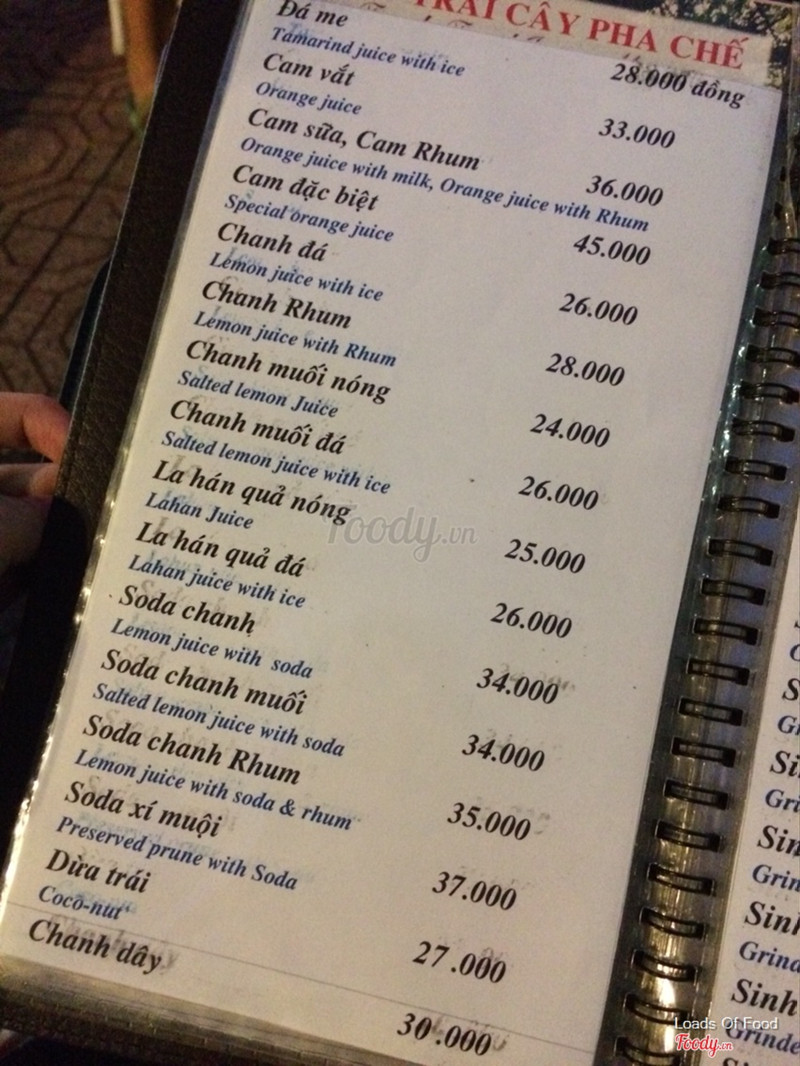 TRÁI CÂY PHA CHẾ
Đá me 28.000 đồng
Tamarind juice with ice
Cam vắt 33.000
Orange juice
Cam sữa, Cam Rhum 36.000
Orange juice with milk, Orange juice with Rhum
Cam đặc biệt 45.000
Special orange juice
Chanh đá 26.000
Lemon juice with ice
Chanh Rhum 28.000
Lemon juice with Rhum
Chanh muối nóng 24.000
Salted lemon Juice
Chanh muối đá 26.000
Salted lemon juice with ice
La hán quả nóng 25.000
Lahan Juice
La hán quả đá 26.000
Lahan juice with ice
Soda chanh 34.000
Lemon juice with soda
Soda chanh muối 34.000
Salted lemon juice with soda
Soda chanh Rhum 35.000
Lemon juice with soda & rhum
Soda xí muội 37.000
Preserved prune with Soda
Dừa trái 27.000
Coco-nut
Chanh dây 30.000
Foody.vn
Sinh
Grind
Sinh
Grinde
Loads Of Food
Foody.vn